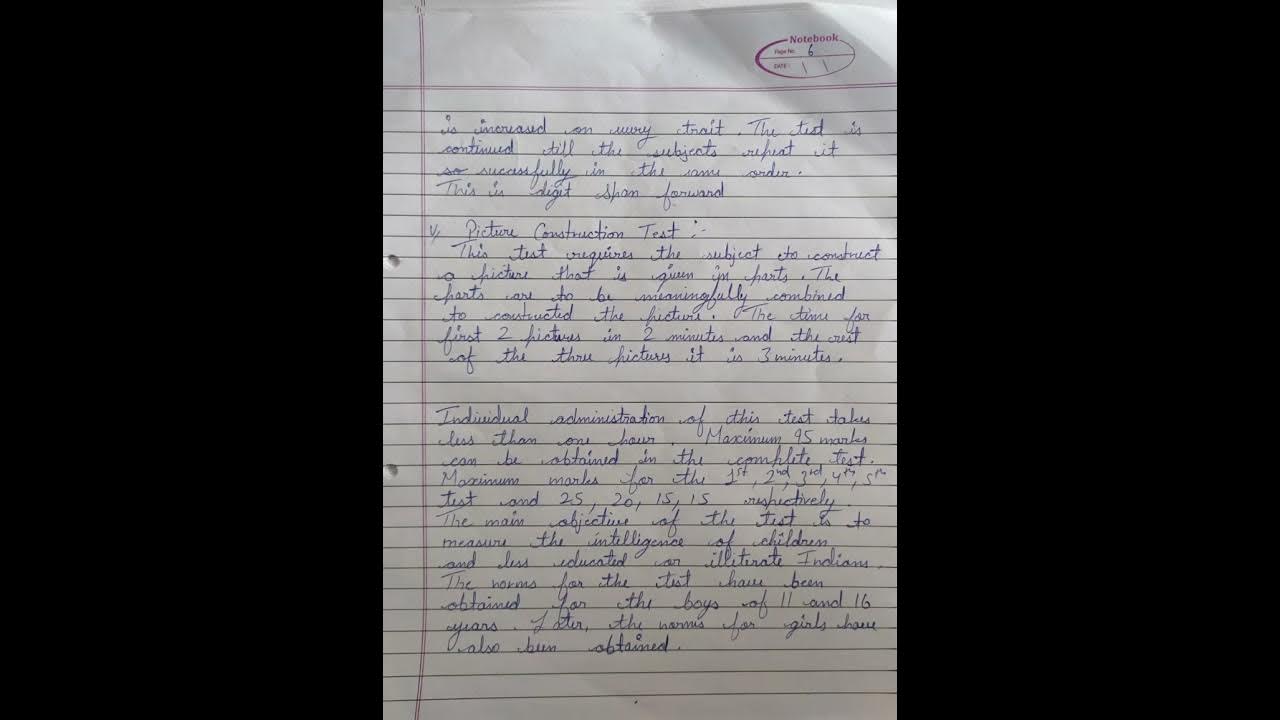 Notebook
Page No. 6
DATE: / /
is increased on every trait. The test is
continued till the subjects repeat it
so successfully in the same order.
This is digit span forward
v) Picture Construction Test :-
This test requires the subject to construct
a picture that is given in parts. The
parts are to be meaningfully combined
to constructed the picture. The time for
first 2 pictures in 2 minutes and the rest
of the three pictures it is 3 minutes.
Individual administration of this test takes
less than one hour. Maximum 95 marks
can be obtained in the complete test.
Maximum marks for the 1st, 2nd, 3rd, 4th, 5th
test and 25, 20, 15, 15 respectively.
The main objective of the test is to
measure the intelligence of children
and less educated or illiterate Indians.
The norms for the test have been
obtained for the boys of 11 and 16
years. Later, the norms for girls have
also been obtained.